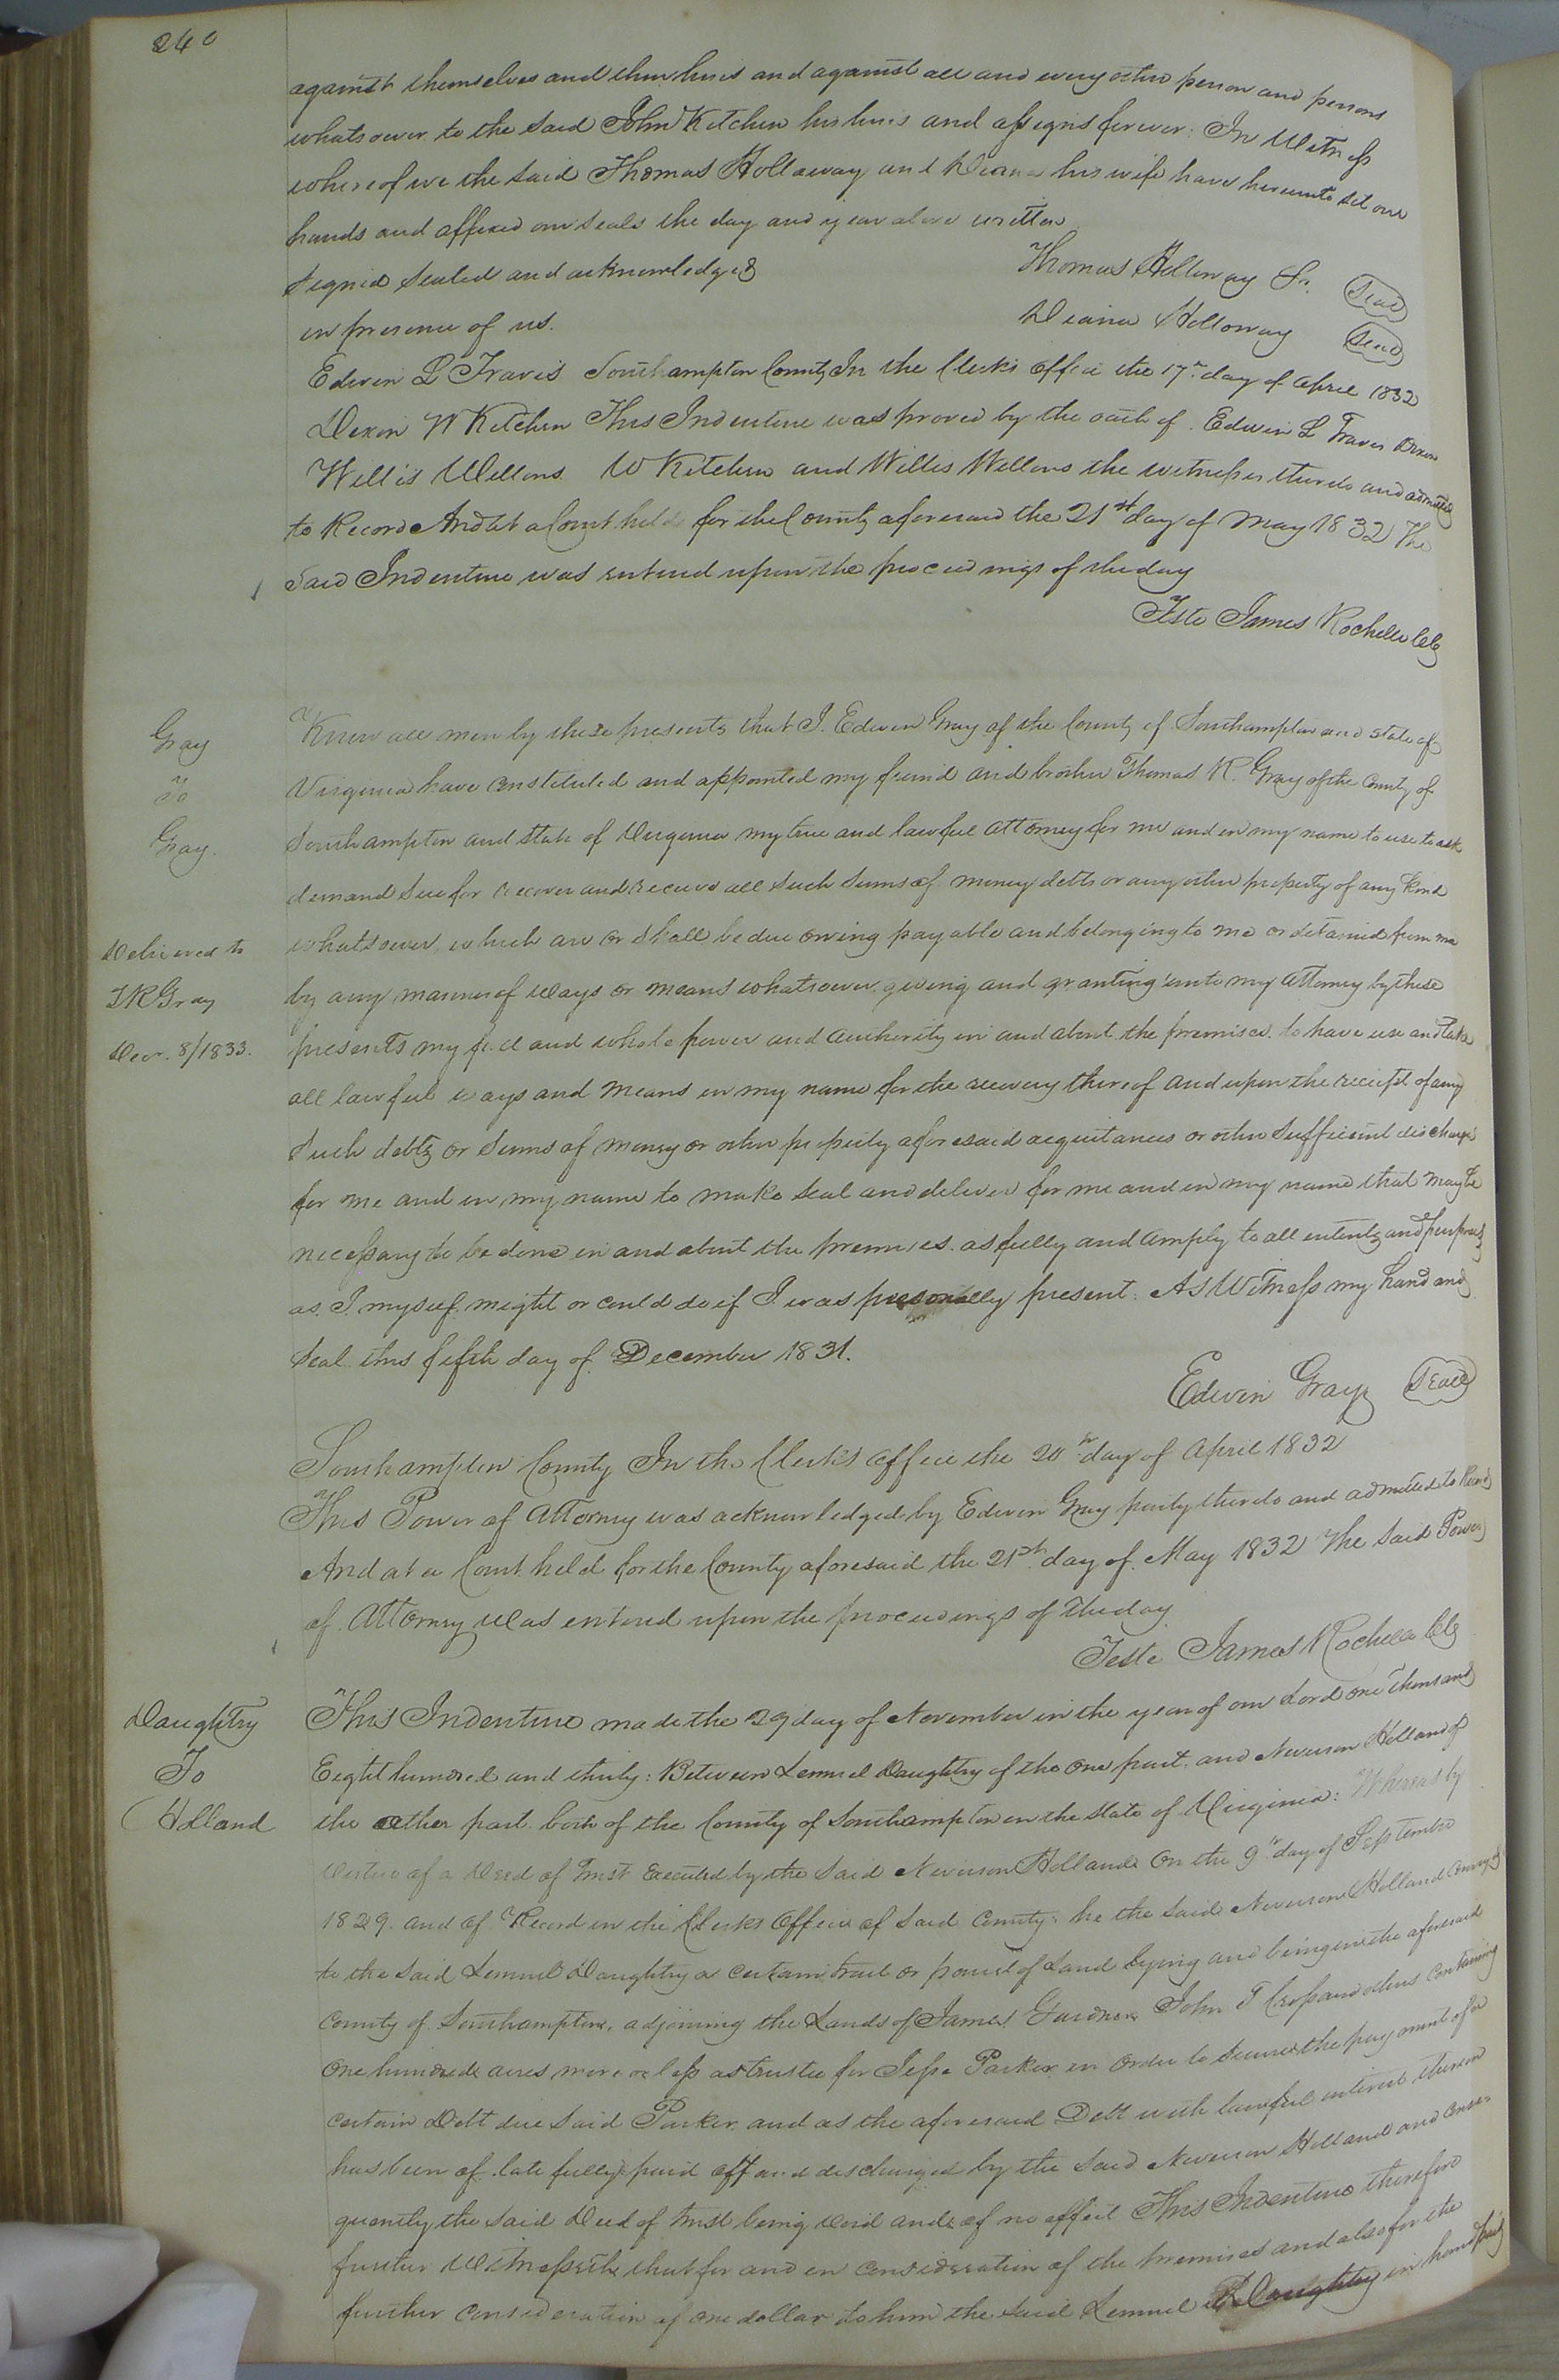 240
against themselves and their heirs and against all and every other person and persons
whatsoever to the said John Kitchen his heirs and assigns forever. In Witness
whereof we the said Thomas Hollaway and Diana his wife have hereunto set our
hands and affixed our seals the day and year above written
Signed Sealed and acknowledged
Thomas Holloway Sr. Seal
in presence of us.
Diana Holloway Seal
Edwin L Travis Southampton County In the Clerks office the 17th day of April 1832
Dixon W Kitchen This Indenture was proved by the oath of Edwin L Travis Dixon
Willis Wellons W Kitchen and Willis Wellons the witnesses thereto and admitted
to Record And at a Court held for the County aforesaid the 21st day of May 1832 The
Said Indenture was entered upon the proceedings of the day
Teste James Rochelle Clk
Gray
To
Gray.
Delivered to
T R Gray
Decr. 8/1833.
Know all men by these presents that I Edwin Gray of the County of Southampton and State of
Virginia have constituted and appointed my friend and brother Thomas R. Gray of the County of
Southampton and State of Virginia my true and lawful attorney for me and in my name to use to ask
demand Sue for recover and receive all Such Sums of money debts or any other property of any kind
whatsoever, which are or Shall be due owing payable and belonging to me or detained from me
by any manner of ways or means whatsoever, giving and granting unto my attorney by these
presents my full and whole power and authority in and about the premises. to have use and take
all lawful ways and means in my name for the recovery thereof and upon the receipt of any
Such debts or Sums of money or other property aforesaid acquitances or other Sufficient discharges
for me and in my name to make Seal and deliver for me and in my name that may be
necessary to be done in and about the premises. as fully and amply to all intents and purposes
as I myself might or could do if I was personally present. As Witness my hand and
Seal this fifth day of December 1831.
Edwin Gray Seal
Southampton County In the Clerks office the 20th day of April 1832
This Power of Attorney was acknowledged by Edwin Gray party thereto and admitted to Record
And at a Court held for the County aforesaid the 21st day of May 1832 The Said Power
of Attorney was entered upon the proceedings of the day
Teste James Rochelle Clk
Daughtry
To
Holland
This Indenture made the 29 day of November in the year of our Lord one Thousand
Eight hundred and thirty: Between Lemuel Daughtry of the one part. and Neverson Holland of
the other part both of the County of Southampton in the State of Virginia: Whereas by
Virtue of a Deed of Trust Executed by the Said Neverson Holland On the 9th day of September
1829. and of Record in the Clerks Office of Said County: he the Said Neverson Holland conveyed
to the Said Lemuel Daughtry a certain tract or parcel of Land lying and being in the aforesaid
County of Southampton, adjoining the Lands of James Gardner John T Cross and others containing
one hundred acres more or less as trustee for Jesse Parker in order to Secure the payment of a
certain Debt due Said Parker. and as the aforesaid Debt with lawful interest thereon
has been of late fully paid off and discharged by the Said Neverson Holland and conse-
quently the Said Deed of trust being void and of no effect This Indenture therefore
further Witnesseth that for and in consideration of the premises and also for the
further consideration of one dollar to him the Said Lemuel Daughtry in hand paid